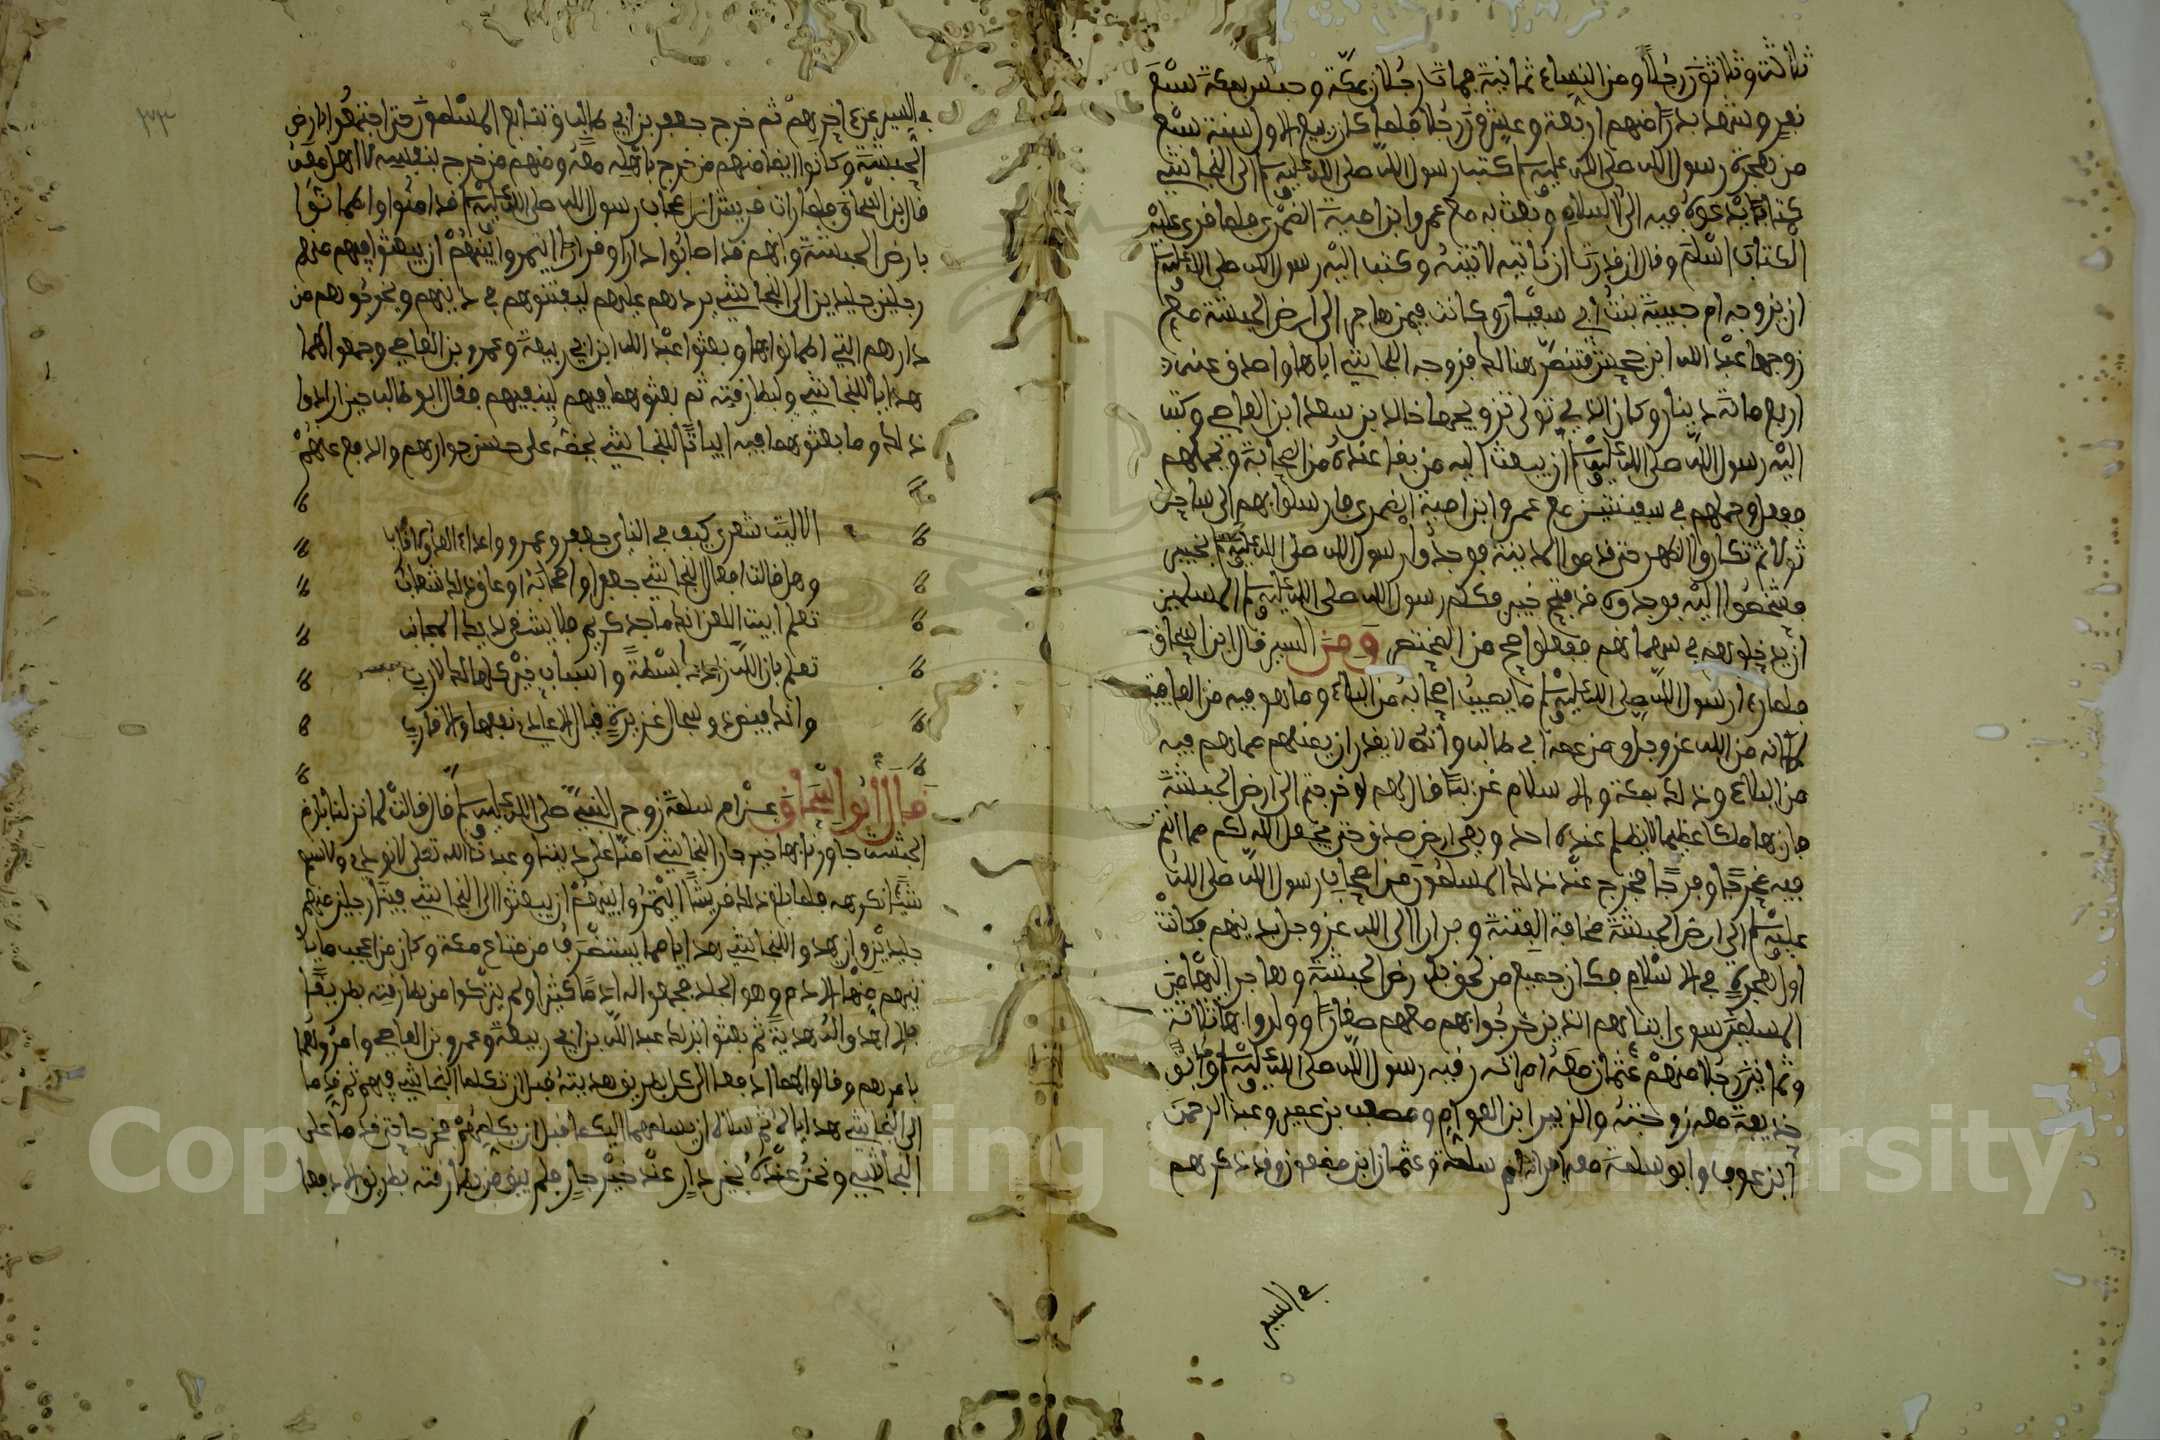 ثلاثة وثلاثون رجلا ومن النساء ثمانية فمات رجلان بمكة وحبس بمكة سبعة
نفر وشهد بدرا منهم اربعة وعشرون رجلا فلما كان ربيع الاول سنة سبع
من هجرة رسول الله صلى الله عليه وسلم كتب رسول الله صلى الله عليه وسلم الى النجاشي
كتابا يدعوه فيه الى الاسلام وبعث به مع عمرو ابن امية الضمري فلما قرئ عليه
الكتاب اسلم وقال ان قدرت ان ناتيه لاتيته وكتب اليه رسول الله صلى الله عليه وسلم
ان يزوجه ام حبيبة بنت ابي سفيان وكانت فيمن هاجر الى ارض الحبشة مع
زوجها عبد الله ابن جحش فتنصر هنالك فزوجه النجاشي اياها واصدق عنه
اربع مائة دينار وكان الذي تولى تزويجها خالد بن سعد ابن العاصي وكتب
اليه رسول الله صلى الله عليه وسلم ان يبعث اليه من بقي عنده من اصحابه ويحملهم
ففعل وحملهم في سفينتين مع عمرو ابن امية الضمري فارسلوا بهم الى ساحل
ثولا ثم تكاروا الظهر حتى قدموا المدينة فوجدوا رسول الله صلى الله عليه وسلم بخيبر
فشخصوا اليه فوجدوه قد فتح خيبر فكلم رسول الله صلى الله عليه وسلم المسلمين
ان يدخلوهم في سهمانهم ففعلوا صح من المختصر ومن السير قال ابن اسحاق
فلما راى رسول الله صلى الله عليه وسلم ما يصيب اصحابه من البلاء وما هو فيه من العافية
لمكانه من الله عز وجل ومن عمه ابي طالب وانه لا يقدر ان يمنعهم مما هم فيه
من البلاء وذلك بمكة والاسلام غريبا قال لهم لو خرجتم الى ارض الحبشة
فان بها ملكا عظيما لا يظلم عنده احد وهي ارض صدق حتى يجعل الله لكم مما انتم
فيه مخرجا وفرجا فخرج عند ذلك المسلمون من اصحاب رسول الله صلى الله
عليه وسلم الى ارض الحبشة مخافة الفتنة وفرارا الى الله عز وجل بدينهم فكانت
اول هجرة في الاسلام فكان جميع من لحق بارض الحبشة وهاجر اليها من
المسلمين سوى ابنائهم الذين خرجوا بهم معهم صغارا وولدوا بها ثلاثة
وثمانين رجلا منهم عثمان معه امراته رقية رسول الله صلى الله عليه وسلم وابو
حذيفة معه زوجته والزبير ابن العوام ومصعب بن عمير وعبد الرحمن
ابن عوف وابو سلمة معه امراته ام سلمة وعثمان ابن مضعون وقد ذكرهم
في السير
في السير عن اخرهم ثم خرج جعفر بن ابي طالب وتتابع المسلمون حتى اجتمعوا بارض
الحبشة وكانوا بها منهم من خرج باهله معه ومنهم من خرج بنفسه لا اهل معه
قال ابن اسحاق فلما رات قريش ان اصحاب رسول الله صلى الله عليه وسلم قد امنوا واطمانوا
بارض الحبشة وانهم قد اصابوا دارا وقرارا ائتمروا بينهم ان يبعثوا فيهم منهم
رجلين جليدين الى النجاشي يردهم عليهم ليفتنوهم في دينهم ويخرجوهم من
دارهم التي اطمانوا بها وبعثوا عبد الله ابن ابي ربيعة وعمرو بن العاصي وجمعوا لهما
هدايا للنجاشي ولبطارقته ثم بعثوهما فيهم ليبغيهم فقال ابو طالب حين راى
ذلك وما بعثوهما فيه ابياتا للنجاشي يحضه على حسن جوارهم والدفع عنهم
الا ليت شعري كيف في الناي جعفر وعمرو واعداء العدو الاقاربا
وهل نالت افعال النجاشي جعفرا واصحابه او عاق ذلك شاغب
تعلم ابيت اللعن انك ماجد كريم فلا يشقى لديك المجانب
تعلم بان الله زادك بسطة واسباب خير كلها لك لازب
وانك فيض ذو سجال غزيرة ينال الاعادي نفعها والاقارب
قال ابن اسحاق عن ام سلمة زوج النبي صلى الله عليه وسلم قال قالت لما نزلنا بارض
الحبشة جاورنا بها خير جار النجاشي امنا على ديننا وعبدنا الله تعلى لا نوذى ولا نسمع
شيئا نكرهه فلما بلغ ذلك قريشا ائتمروا بينهم ان يبعثوا الى النجاشي فينا رجلين منهم
جليدين وان يهدوا للنجاشي هدايا مما يستطرف من متاع مكة وكان من اعجب ما يا
تيهم منها الادم وهو الجلد فجمعوا له ادما كثيرا ولم يتركوا من بطارقته بطريقا
الا اهدوا له هدية ثم بعثوا بذلك عبد الله بن ابي ربيعة وعمرو بن العاصي وامروهما
بامرهم وقالوا لهما ادفعا الى كل بطريق هديته قبل ان تكلما النجاشي فيهم ثم قدما
الى النجاشي هداياه ثم سلاه ان يسلمهم اليكما قبل ان يكلمهم فخرجا حتى قدما على
النجاشي ونحن عنده بخير دار عند خير جار فلم يبق من بطارقته بطريق الا دفعا
Copyright © King Saud University